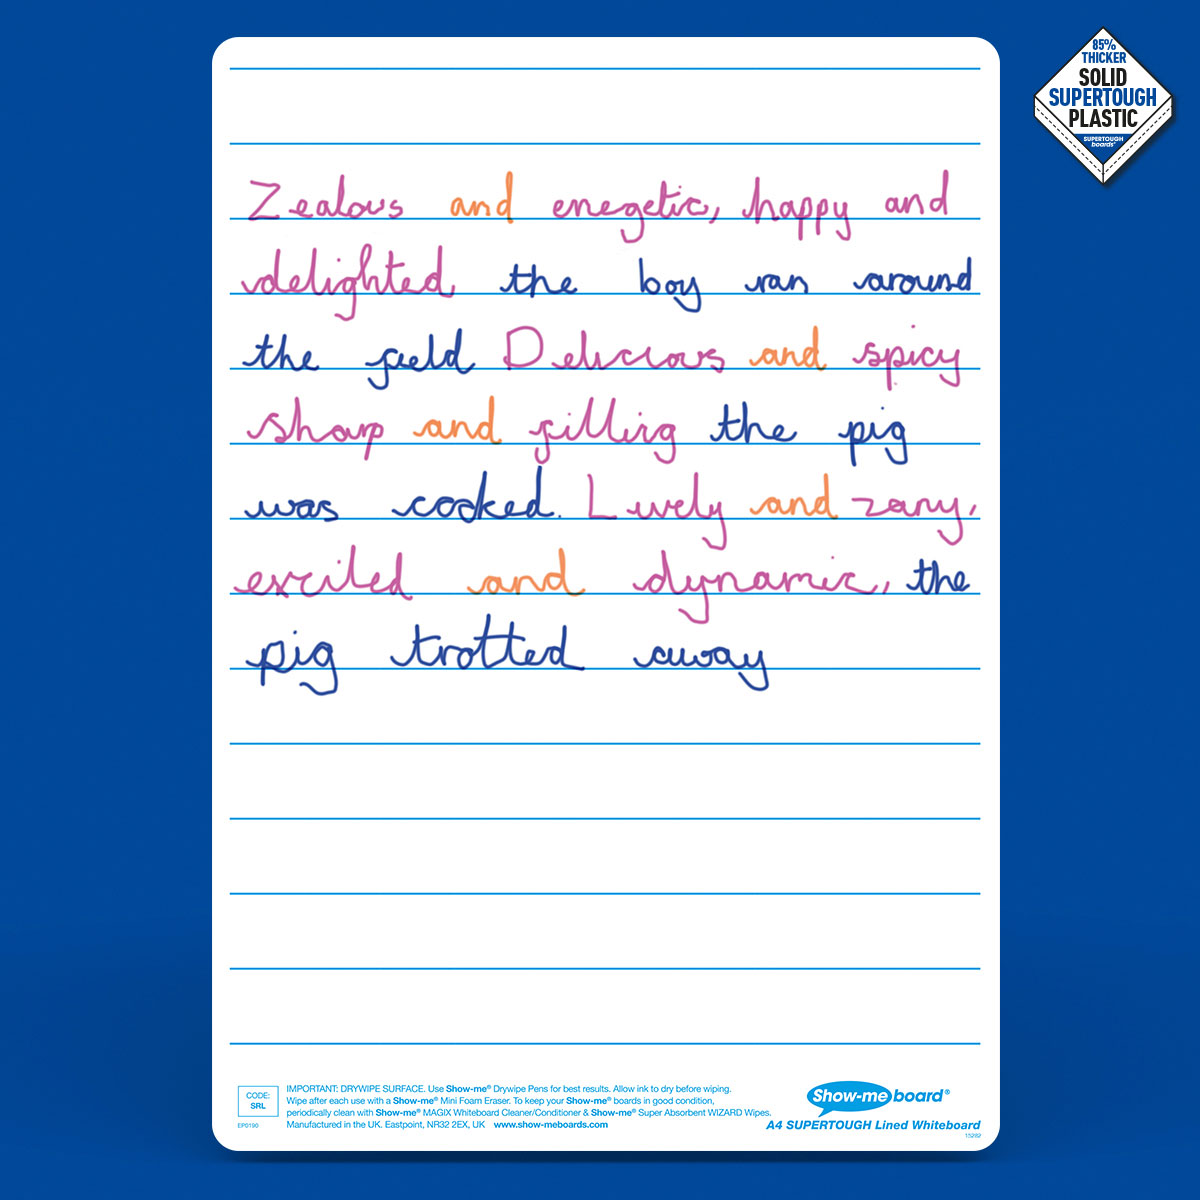 85%
THICKER
SOLID
SUPERTOUGH
PLASTIC
SUPERTOUGH
boards®
Zealous and enegetic, happy and
delighted the boy ran around
the field Delicious and spicy
sharp and filling the pig
was cooked. Lively and zany,
excited and dynamic, the
pig trotted away
CODE:
SRL
EP0190
IMPORTANT: DRYWIPE SURFACE. Use Show-me® Drywipe Pens for best results. Allow ink to dry before wiping.
Wipe after each use with a Show-me® Mini Foam Eraser. To keep your Show-me® boards in good condition,
periodically clean with Show-me® MAGIX Whiteboard Cleaner/Conditioner & Show-me® Super Absorbent WIZARD Wipes.
Manufactured in the UK. Eastpoint, NR32 2EX, UK www.show-meboards.com
Show-me board®
A4 SUPERTOUGH Lined Whiteboard
15282